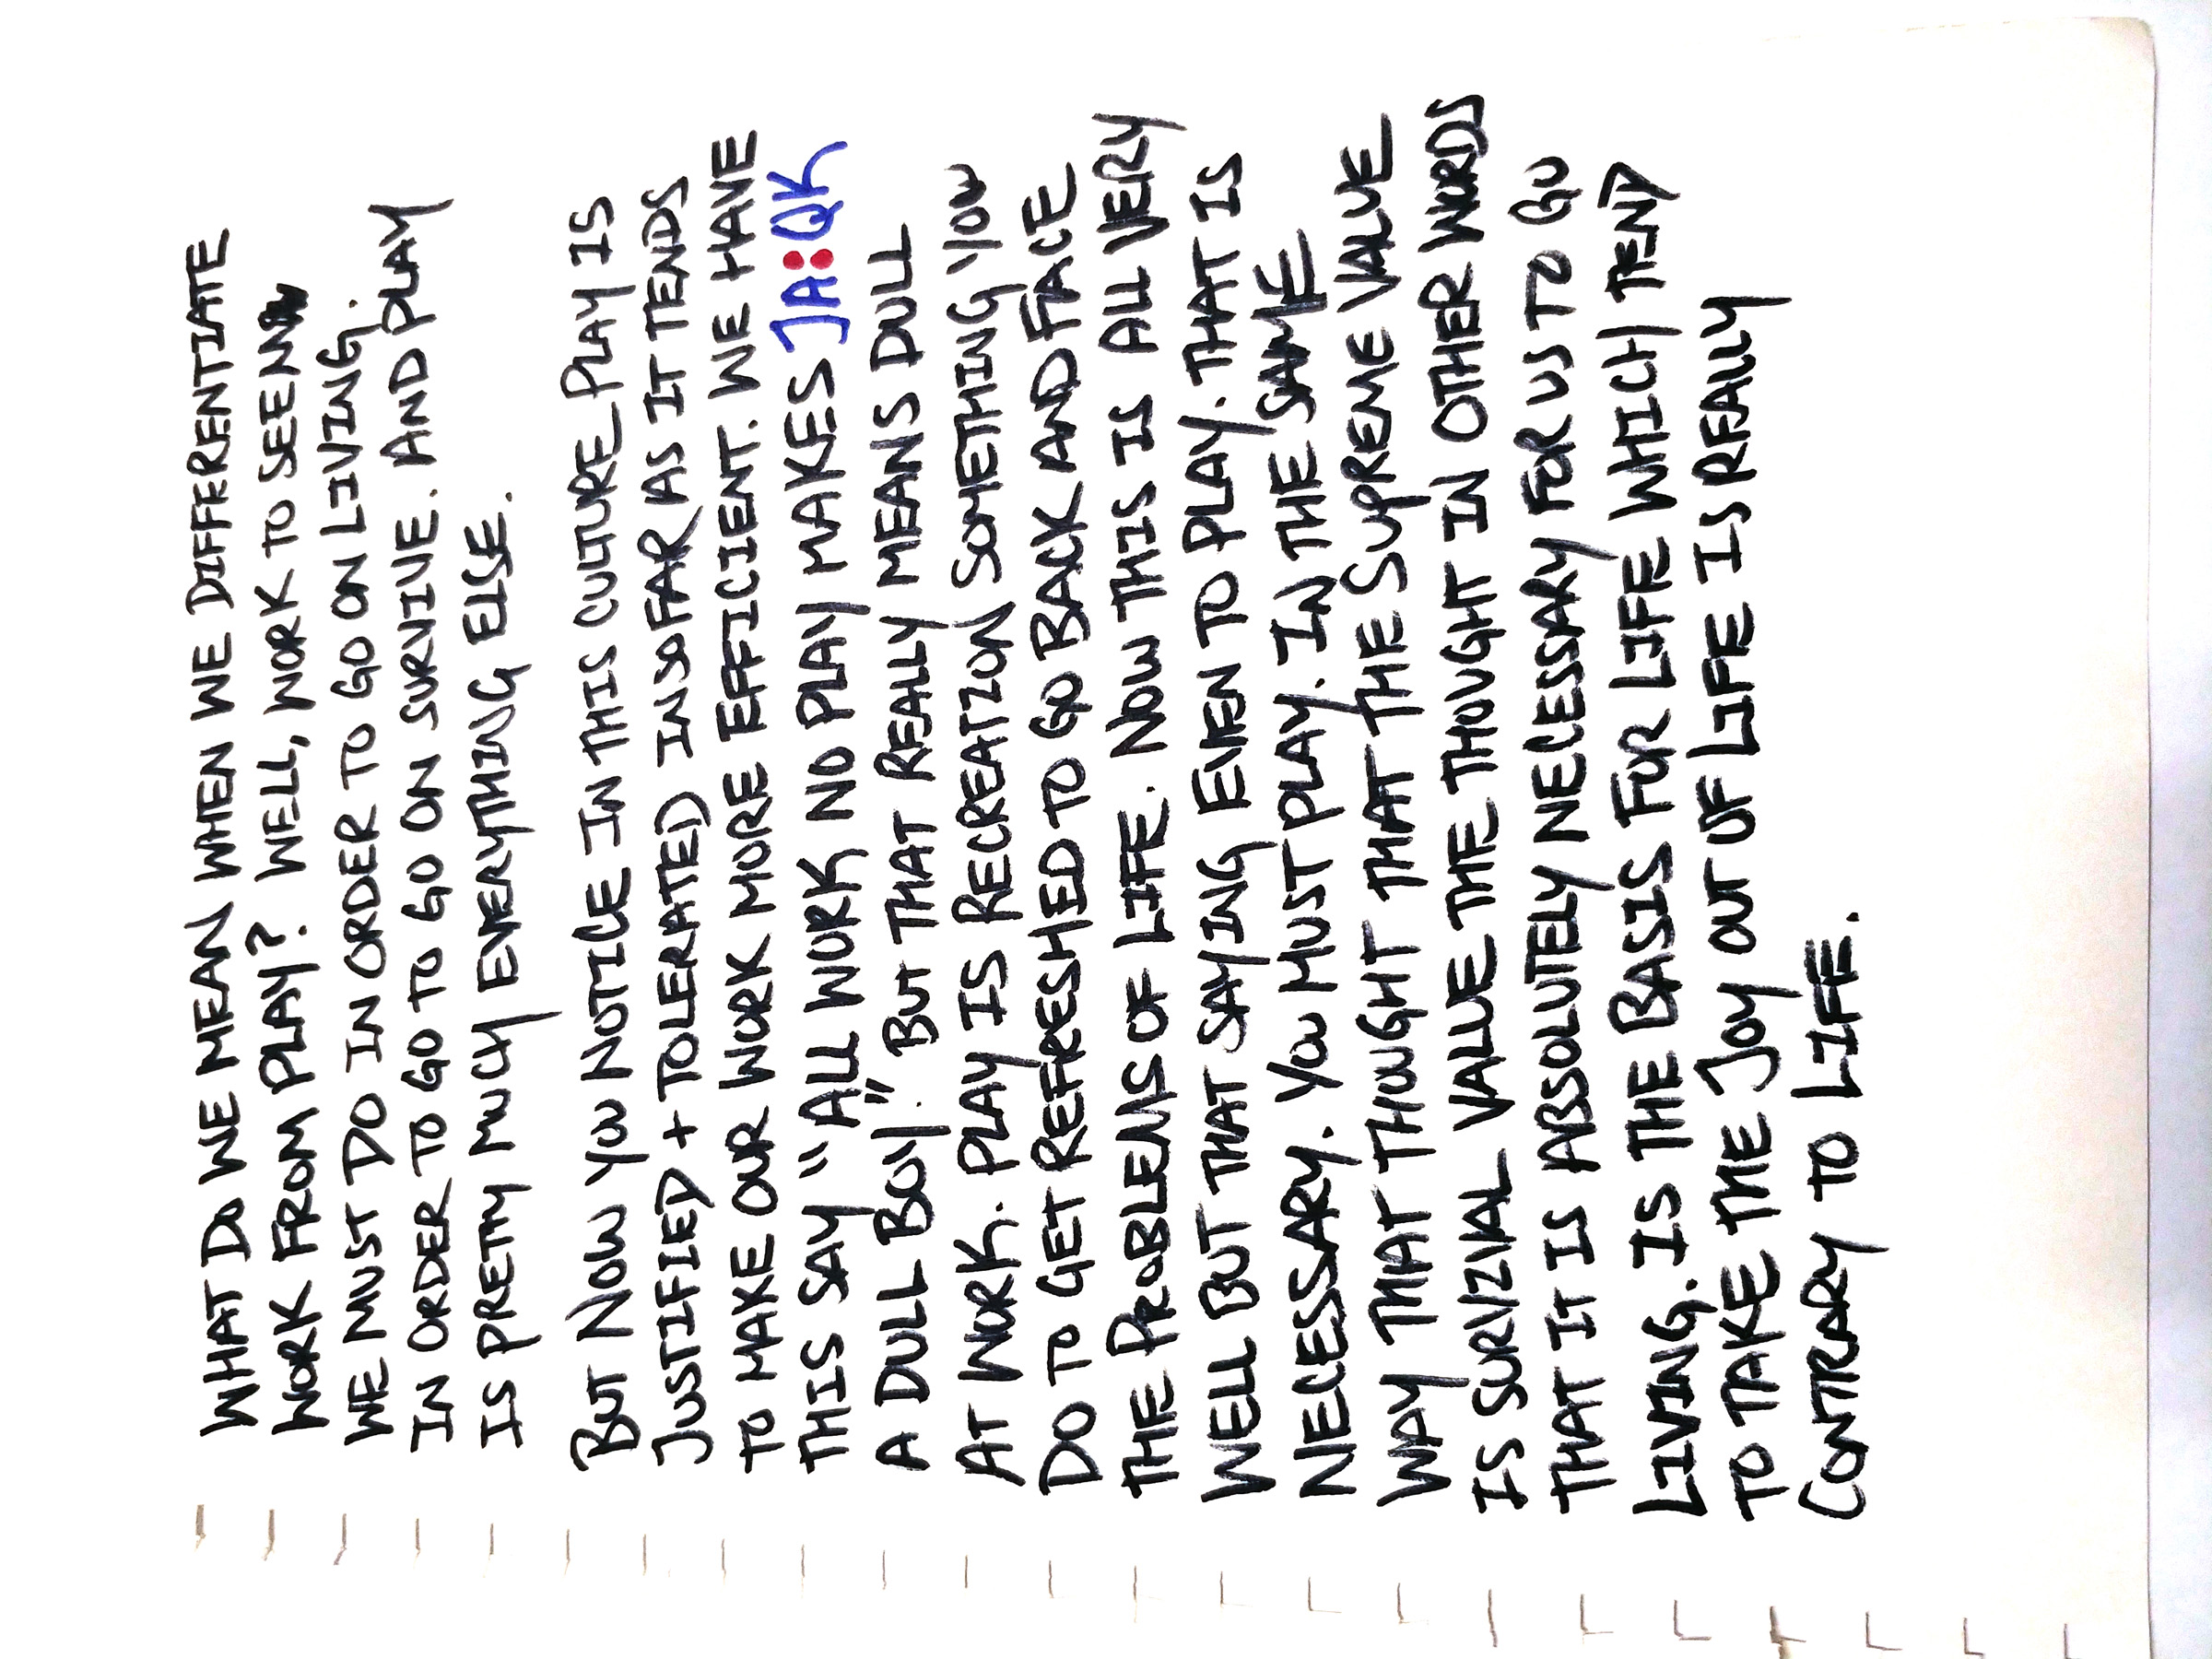 WHAT DO WE MEAN WHEN WE DIFFERENTIATE
WORK FROM PLAY? WELL, WORK TO SEE
WE MUST DO IN ORDER TO GO ON LIVING.
IN ORDER TO GO TO GO ON SURVIVE. AND PLAY
IS PRETTY MUCH EVERYTHING ELSE.
BUT NOW YOU NOTICE IN THIS CULTURE PLAY IS
JUSTIFIED + TOLERATED INSOFAR AS IT TENDS
TO MAKE OUR WORK MORE EFFICIENT. WE HAVE
THIS SAY "ALL WORK NO PLAY MAKES JA:QK
A DULL BOY." BUT THAT REALLY MEANS DULL
AT WORK. PLAY IS RECREATION SOMETHING YOU
DO TO GET REFRESHED TO GO BACK AND FACE
THE PROBLEMS OF LIFE. NOW THIS IS ALL VERY
WELL BUT THAT SAYING EVEN TO PLAY. THAT IS
NECESSARY. YOU MUST PLAY. IN THE SAME
WAY THAT THOUGHT THAT THE SUPREME VALUE
IS SURVIVAL VALUE THE THOUGHT IN OTHER WORDS
THAT IT IS ABSOLUTELY NECESSARY FOR US TO GO
LIVING. IS THE BASIS FOR LIFE WHICH TEND
TO TAKE THE JOY OUT OF LIFE IS REALLY
CONTRARY TO LIFE.